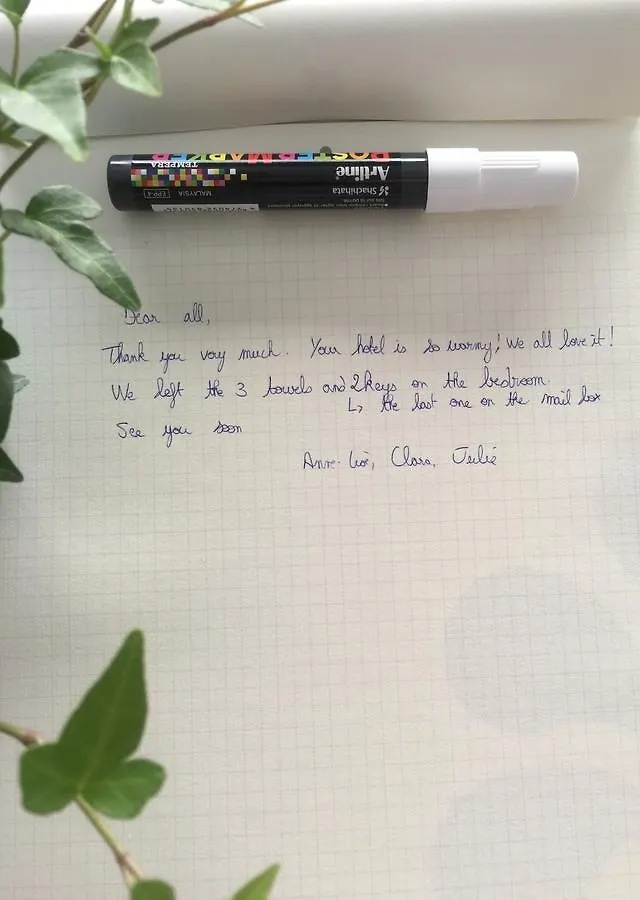 POSTERMARKER
TEMPERA
Artline
Shachihata
MALAYSIA
EPP-4
Dear all,
Thank you very much. Your hotel is so warmy! We all love it!
We left the 3 towels and 2 keys on the bedroom.
↳ the last one on the mail box
See you soon
Clara, Julie